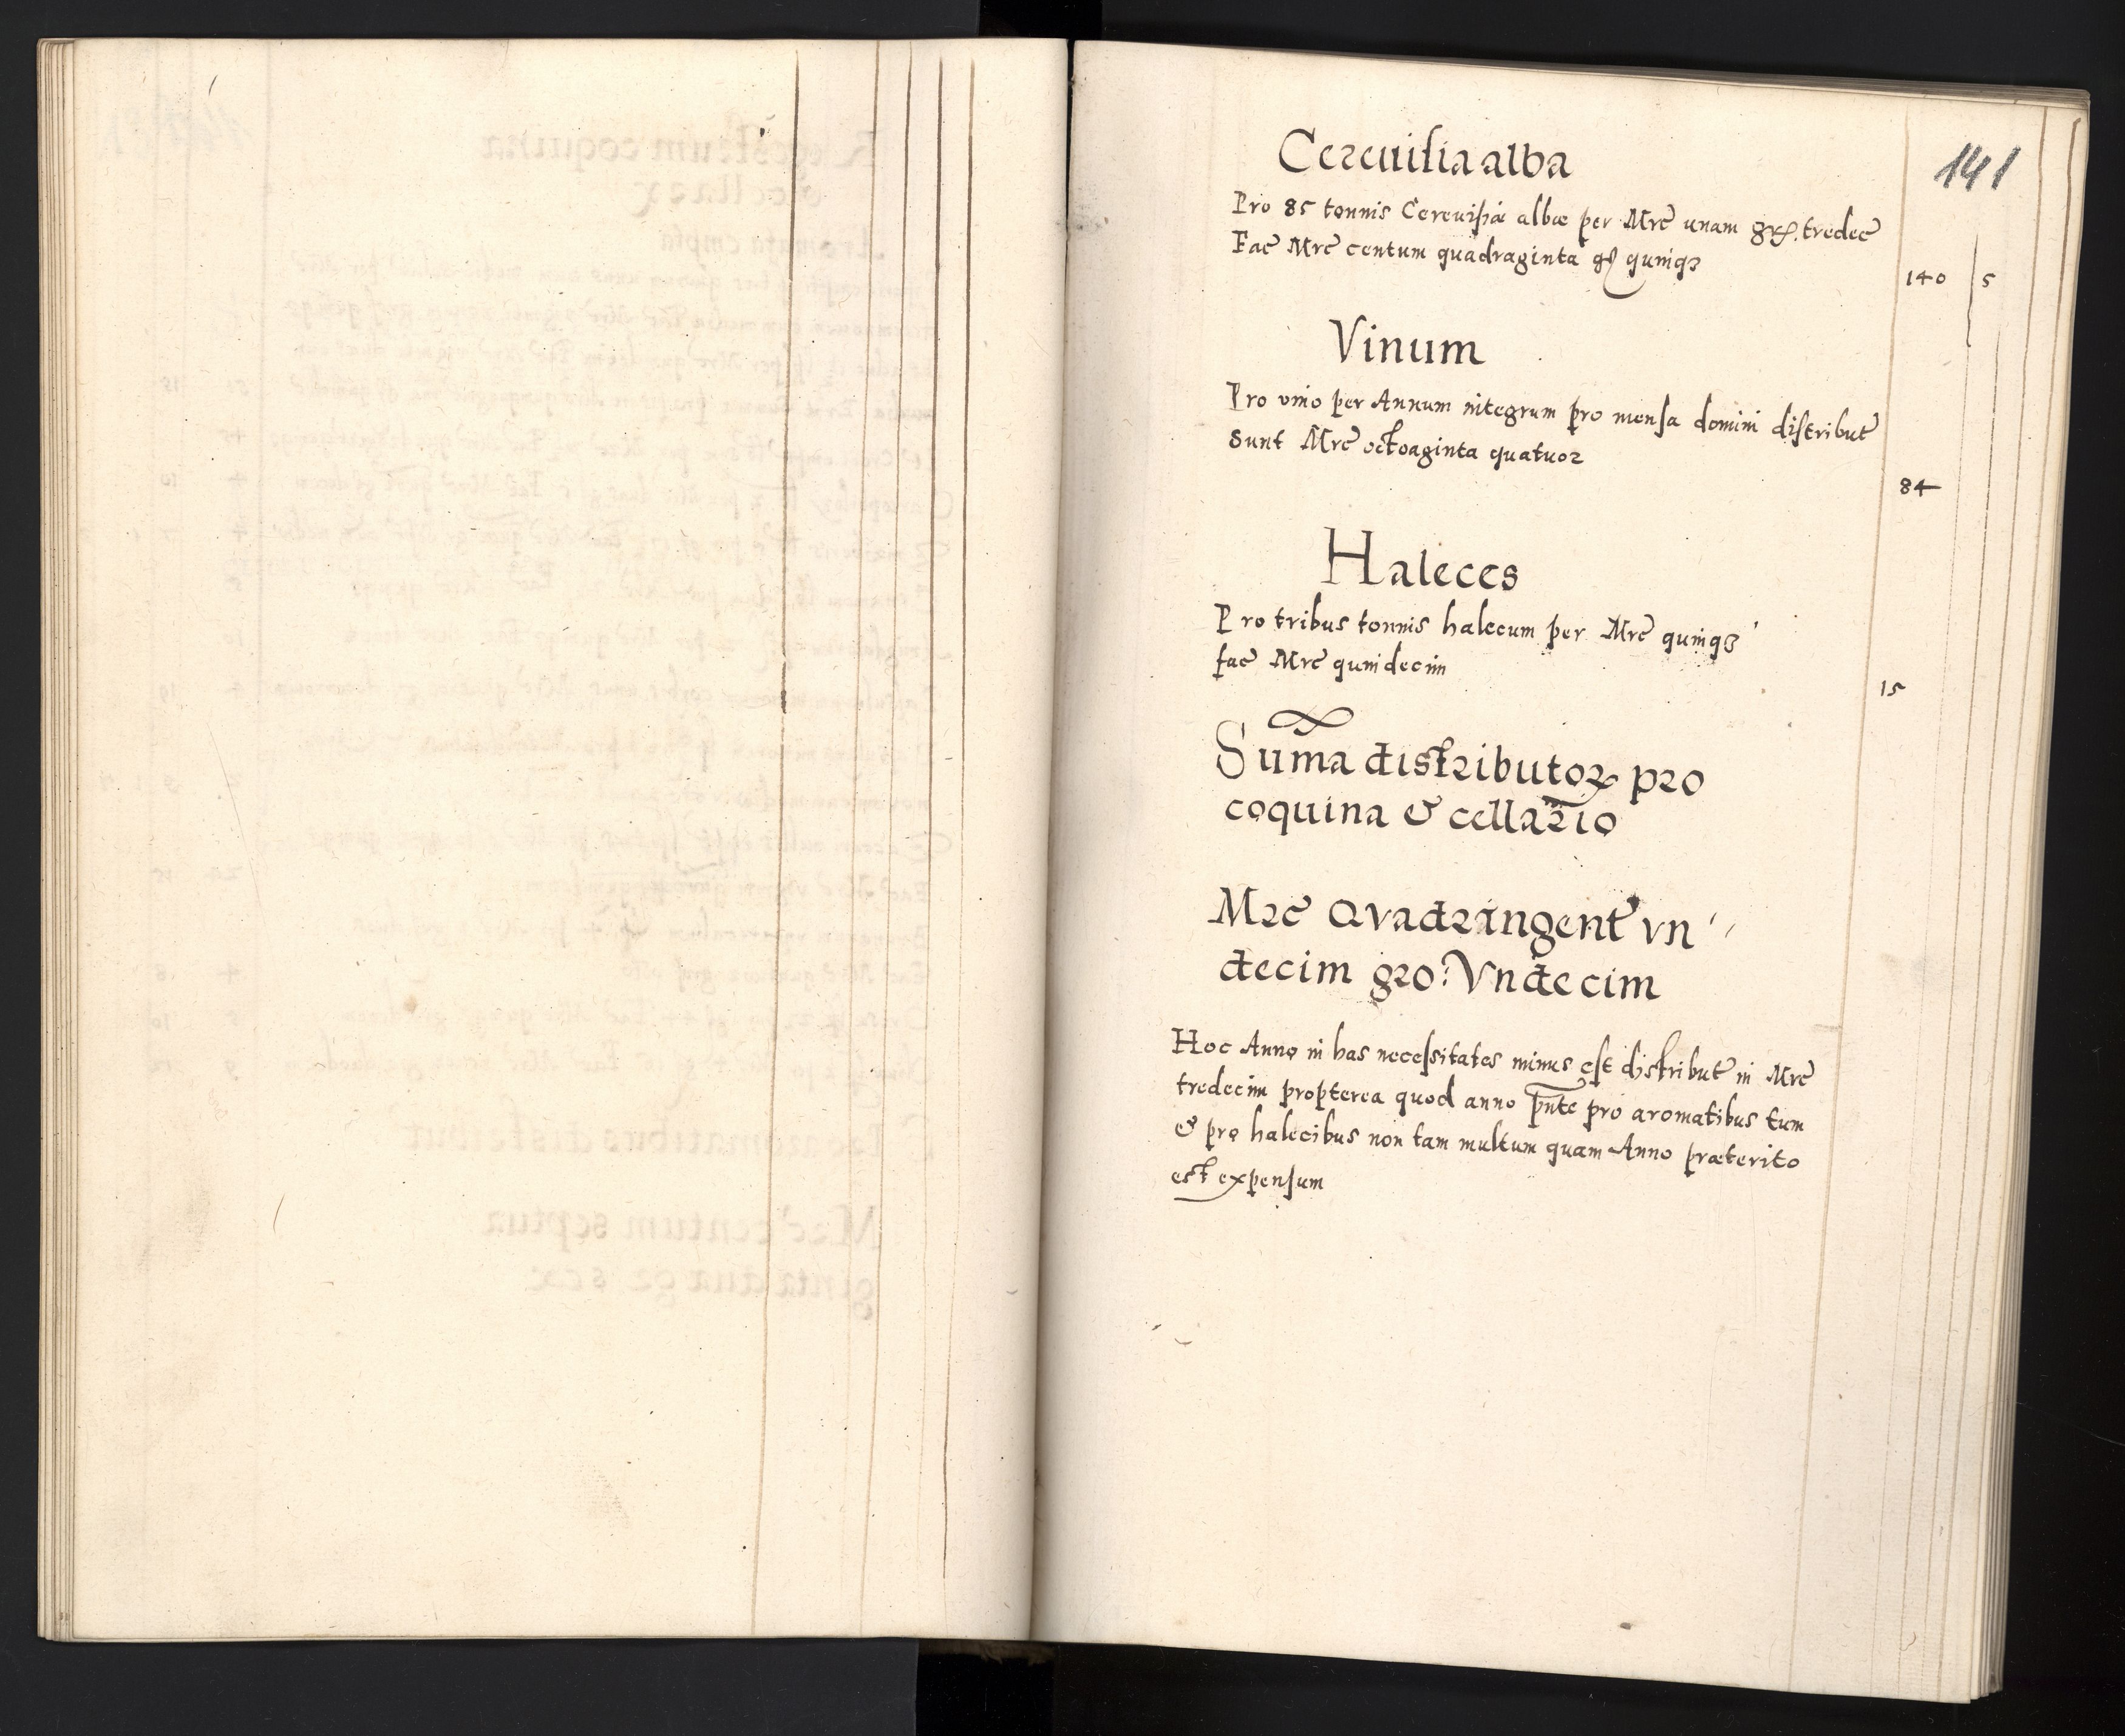 141
Cerevisia alba
Pro 85 tonnis Cerevisiæ albæ per Mrc unam gr. tredec
Fac Mrc centum quadraginta gr quinqꝫ
140 5
Vinum
Pro vino per Annum integrum pro mensa domini distribut
Sunt Mrc octoaginta quatuor
84
Haleces
Pro tribus tonnis halecum per Mrc quinqꝫ
fac Mrc quindecim
15
Suma distributoꝝ pro
coquina & cellario
Mrc Quadringent vn
decim gro: Vndecim
Hoc Anno in has necessitates minus est distribut in Mrc
tredecim propterea quod anno pnte pro aromatibus tum
& pro halecibus non tam multum quam Anno præterito
est expensum